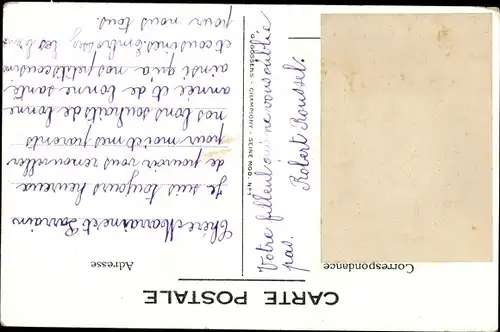 CARTE POSTALE
Correspondance
Adresse
Chère Marraine et Parrain
Je suis toujours heureux
de pouvoir vous renouveller
pour moi et mes parents
nos bons souhaits de bonne
année et de bonne santé
ainsi qu'a nos petits cousins
et cousines. Embrassez les bien
pour nous tous.
Votre filleul qui ne vous oublie
pas.
Robert Roussel.
GOOSSENS - CHAMPIGNY - SEINE MOD. N°1